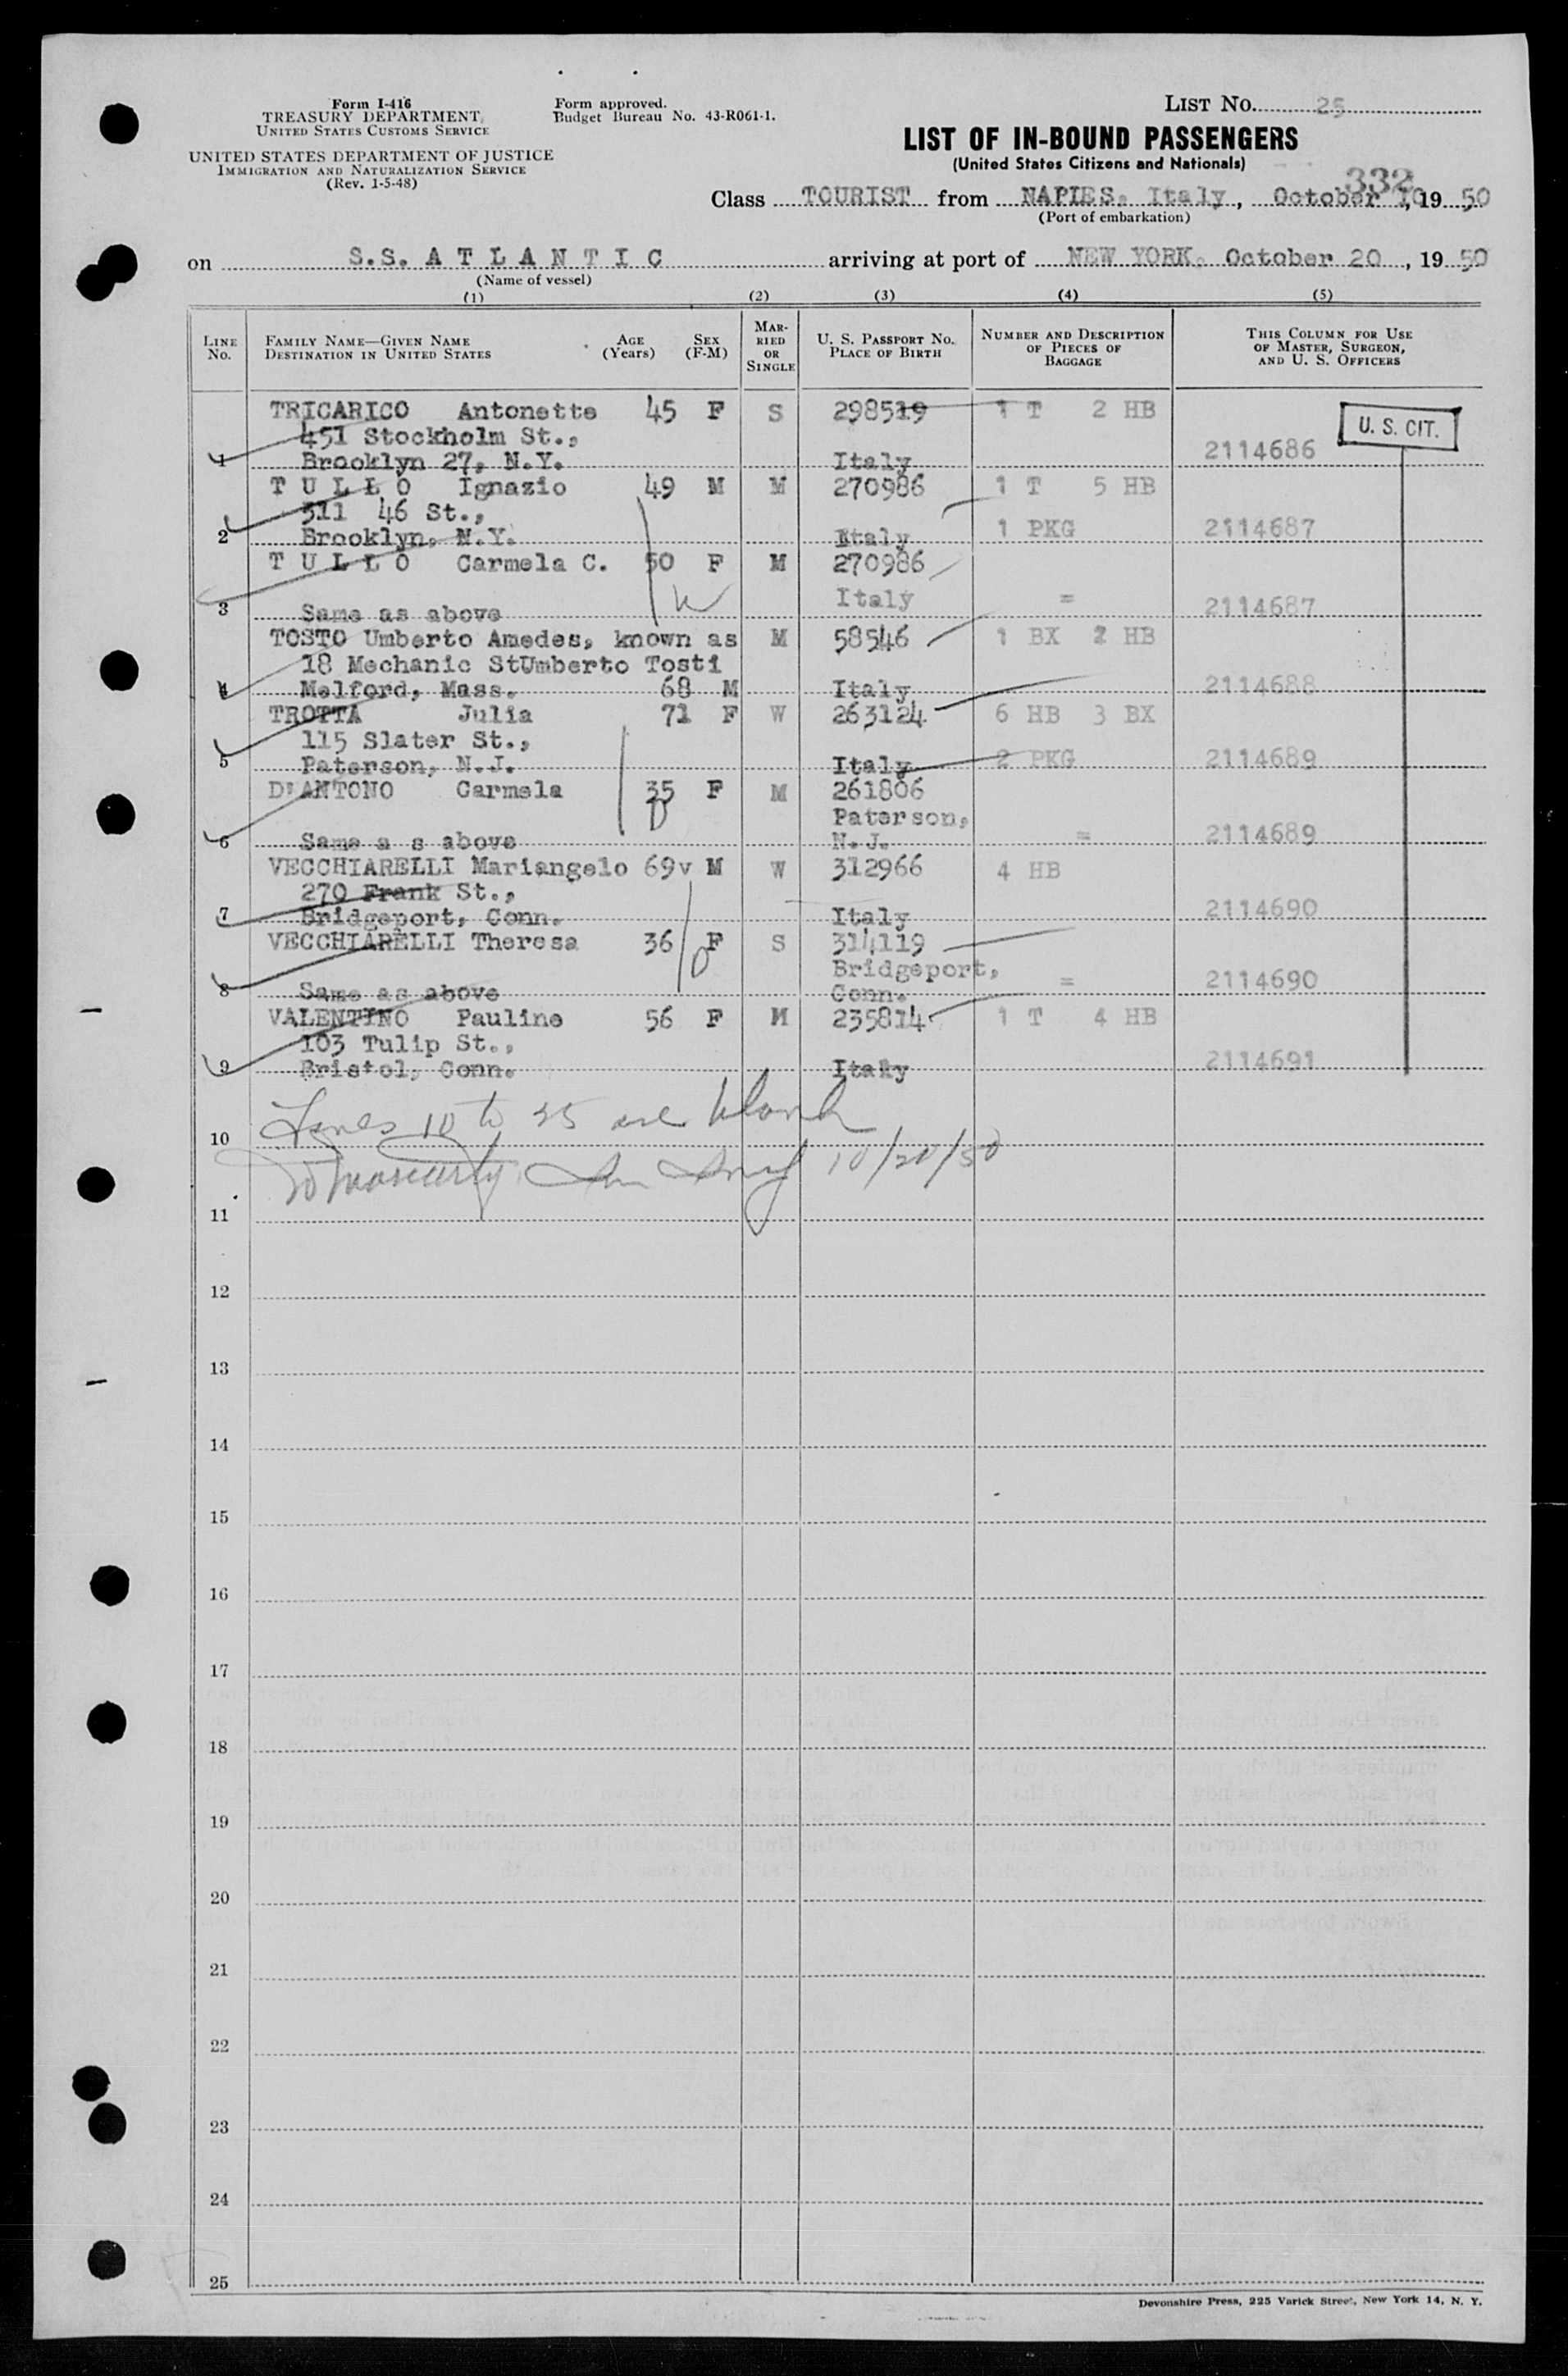 Form I-416
TREASURY DEPARTMENT
UNITED STATES CUSTOMS SERVICE
UNITED STATES DEPARTMENT OF JUSTICE
IMMIGRATION AND NATURALIZATION SERVICE
(Rev. 1-5-48)
Form approved.
Budget Bureau No. 43-R061-1.
LIST NO. 25
LIST OF IN-BOUND PASSENGERS
(United States Citizens and Nationals)
332
Class TOURIST from NAPLES. Italy, October 10, 19 50
(Port of embarkation)
on S.S. A T L A N T I C arriving at port of NEW YORK. October 20, 19 50
(Name of vessel)
(1) (2) (3) (4) (5)
LINE NO. FAMILY NAME—GIVEN NAME DESTINATION IN UNITED STATES AGE (Years) SEX (F-M) MARRIED OR SINGLE U. S. PASSPORT NO. PLACE OF BIRTH NUMBER AND DESCRIPTION OF PIECES OF BAGGAGE THIS COLUMN FOR USE OF MASTER, SURGEON, AND U. S. OFFICERS
TRICARICO Antonette 45 F S 298519 1 T 2 HB
451 Stockholm St., U. S. CIT.
1 Brooklyn 27, N.Y. Italy 2114686
T U L L O Ignazio 49 M M 270986 1 T 5 HB
311 46 St.,
2 Brooklyn, N.Y. Italy 1 PKG 2114687
T U L L O Carmela C. 50 F M 270986
W Italy =
3 Same as above 2114687
TOSTO Umberto Amedes, known as M 58546 1 BX 2 HB
18 Mechanic StUmberto Tosti
4 Melford, Mass. 68 M Italy 2114688
TROTTA Julia 71 F W 263124 6 HB 3 BX
115 Slater St.,
5 Paterson, N.J. Italy 2 PKG 2114689
D'ANTONO Carmela 35 F M 261806
Paterson,
6 Same a s above N.J. = 2114689
VECCHIARELLI Mariangelo 69v M W 312966 4 HB
270 Frank St.,
7 Bridgeport, Conn. Italy 2114690
VECCHIARELLI Theresa 36 F S 314119
Bridgeport,
8 Same as above Conn. = 2114690
VALENTINO Pauline 56 F M 235814 1 T 4 HB
103 Tulip St.,
9 Bristol, Conn. Italy 2114691
Lines 10 to 25 are blank
10
10/20/50
11
12
13
14
15
16
17
18
19
20
21
22
23
24
25
Devonshire Press, 225 Varick Street, New York 14, N. Y.